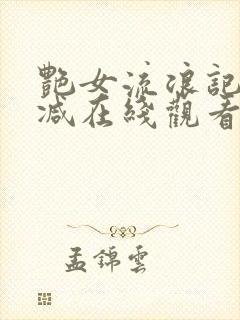 艷女流浪記
減在綫觀看
孟錦雲